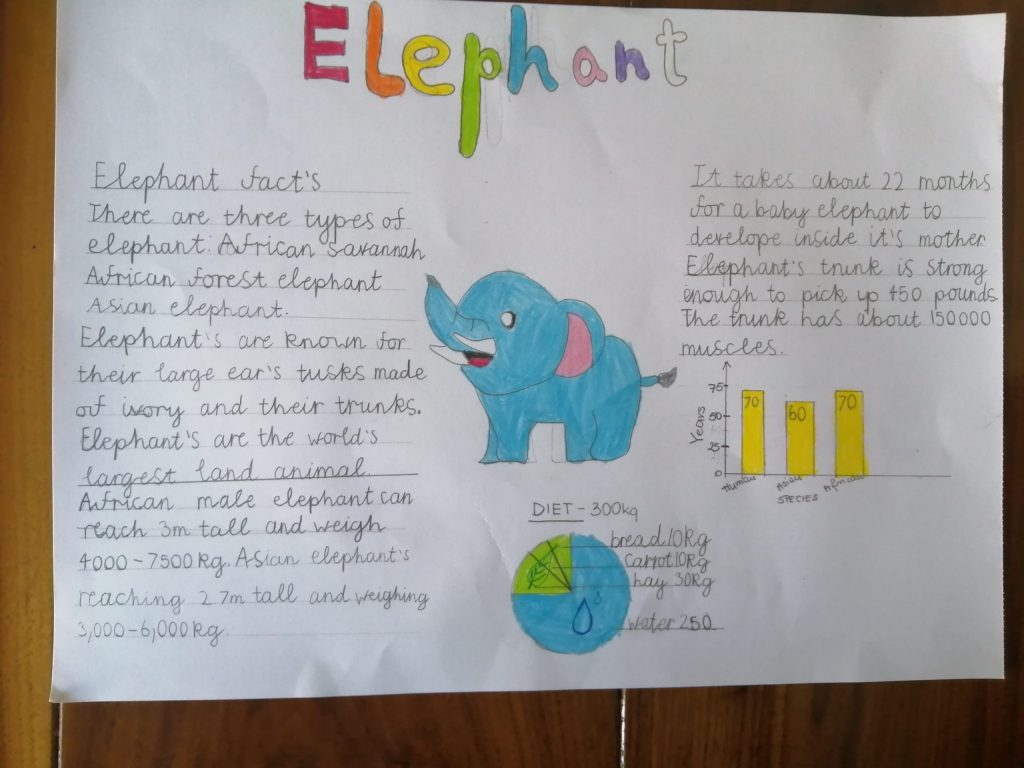 Elephant
Elephant fact's
There are three types of
elephant: African Savannah
African forest elephant
Asian elephant.
Elephant's are known for
their large ear's tusks made
of ivory and their trunks.
Elephant's are the world's
largest land animal.
African male elephant can
reach 3m tall and weigh
4000-7500kg. Asian elephant's
reaching 2.7m tall and weighing
3,000-6,000kg.
It takes about 22 months
for a baby elephant to
develope inside it's mother
Elephant's trunk is strong
enough to pick up 450 pounds
The trunk has about 150000
muscles.
Years
75
50
25
0
70
60
70
Human
Asian
African
SPECIES
DIET - 300kg
bread 10kg
Carrot 10kg
hay 30kg
water 250